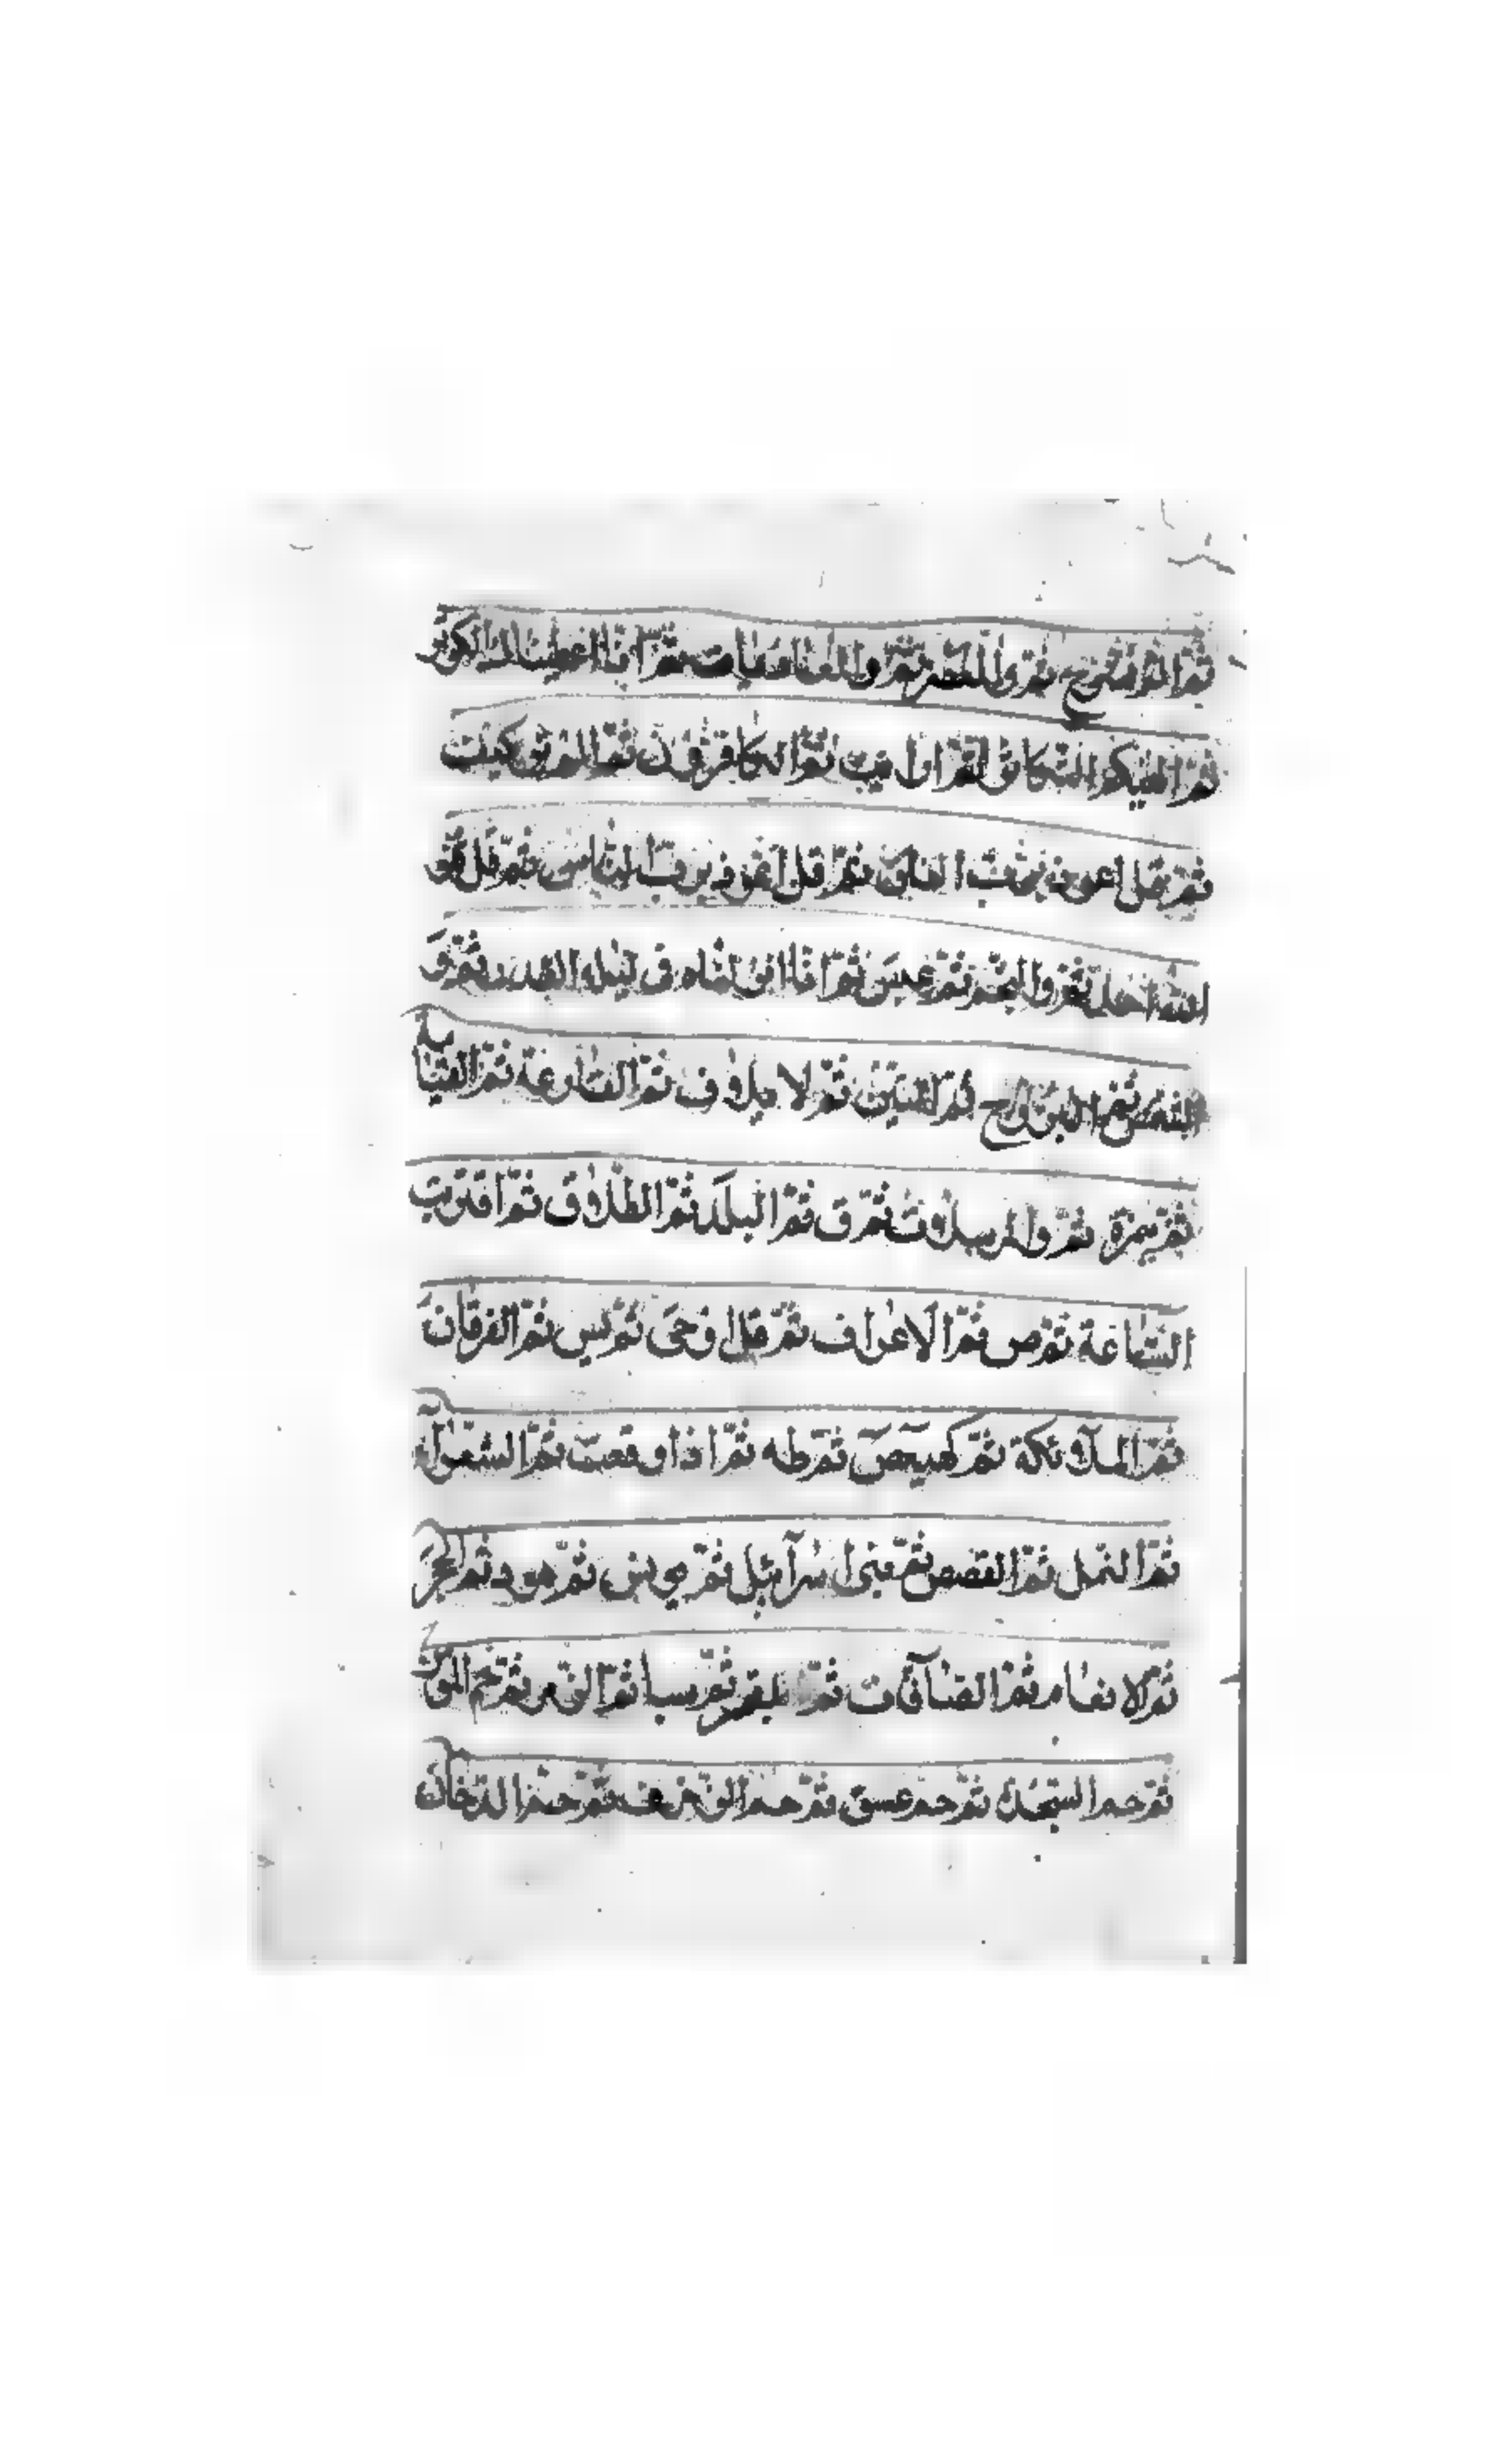 ثمّ الم نشرح ثمّ والعصر ثمّ والعاديات ثمّ انّا اعطيناك الكوثر
ثمّ الهيكم التّكاثر ثمّ ارايت ثمّ الكافرون ثمّ الم تر كيف
ثمّ قل اعوذ بربّ الفلق ثمّ قل اعوذ بربّ النّاس ثمّ قل هو
اللّه احد ثمّ والنّجم ثمّ عبس ثمّ انّا انزلناه في ليلة القدر ثمّ و
الشّمس ثمّ البروج ثمّ التّين ثمّ لايلاف ثمّ القارعة ثمّ القيامة
ثمّ همزة ثمّ والمرسلات ثمّ ق ثمّ البلد ثمّ الطّارق ثمّ اقتربت
السّاعة ثمّ ص ثمّ الاعراف ثمّ قل اوحى ثمّ يس ثمّ الفرقان
ثمّ الملائكة ثمّ كهيعص ثمّ طه ثمّ اذا وقعت ثمّ الشعرآء
ثمّ النمل ثمّ القصص ثمّ بنى اسرآئيل ثمّ يونس ثمّ هود ثمّ الحجر
ثمّ الانعام ثمّ الصّآفّات ثمّ سبأ ثمّ الزّمر ثمّ حم المؤمن
ثمّ حم السّجدة ثمّ حم عسق ثمّ حم الزّخرف ثمّ حم الدّخان